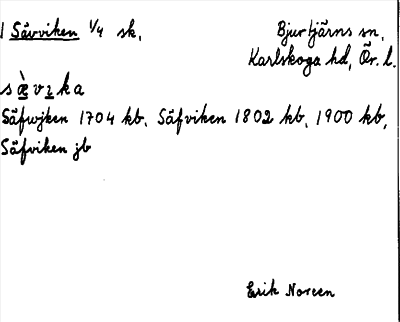 1 Sävviken 1/4 sk.
Bjurtjärns sn,
Karlskoga hd, Ör. l.
sæ̀vıka
Säfwjken 1704 kb. Säfviken 1802 kb, 1900 kb,
Säfviken jb
Erik Noreen